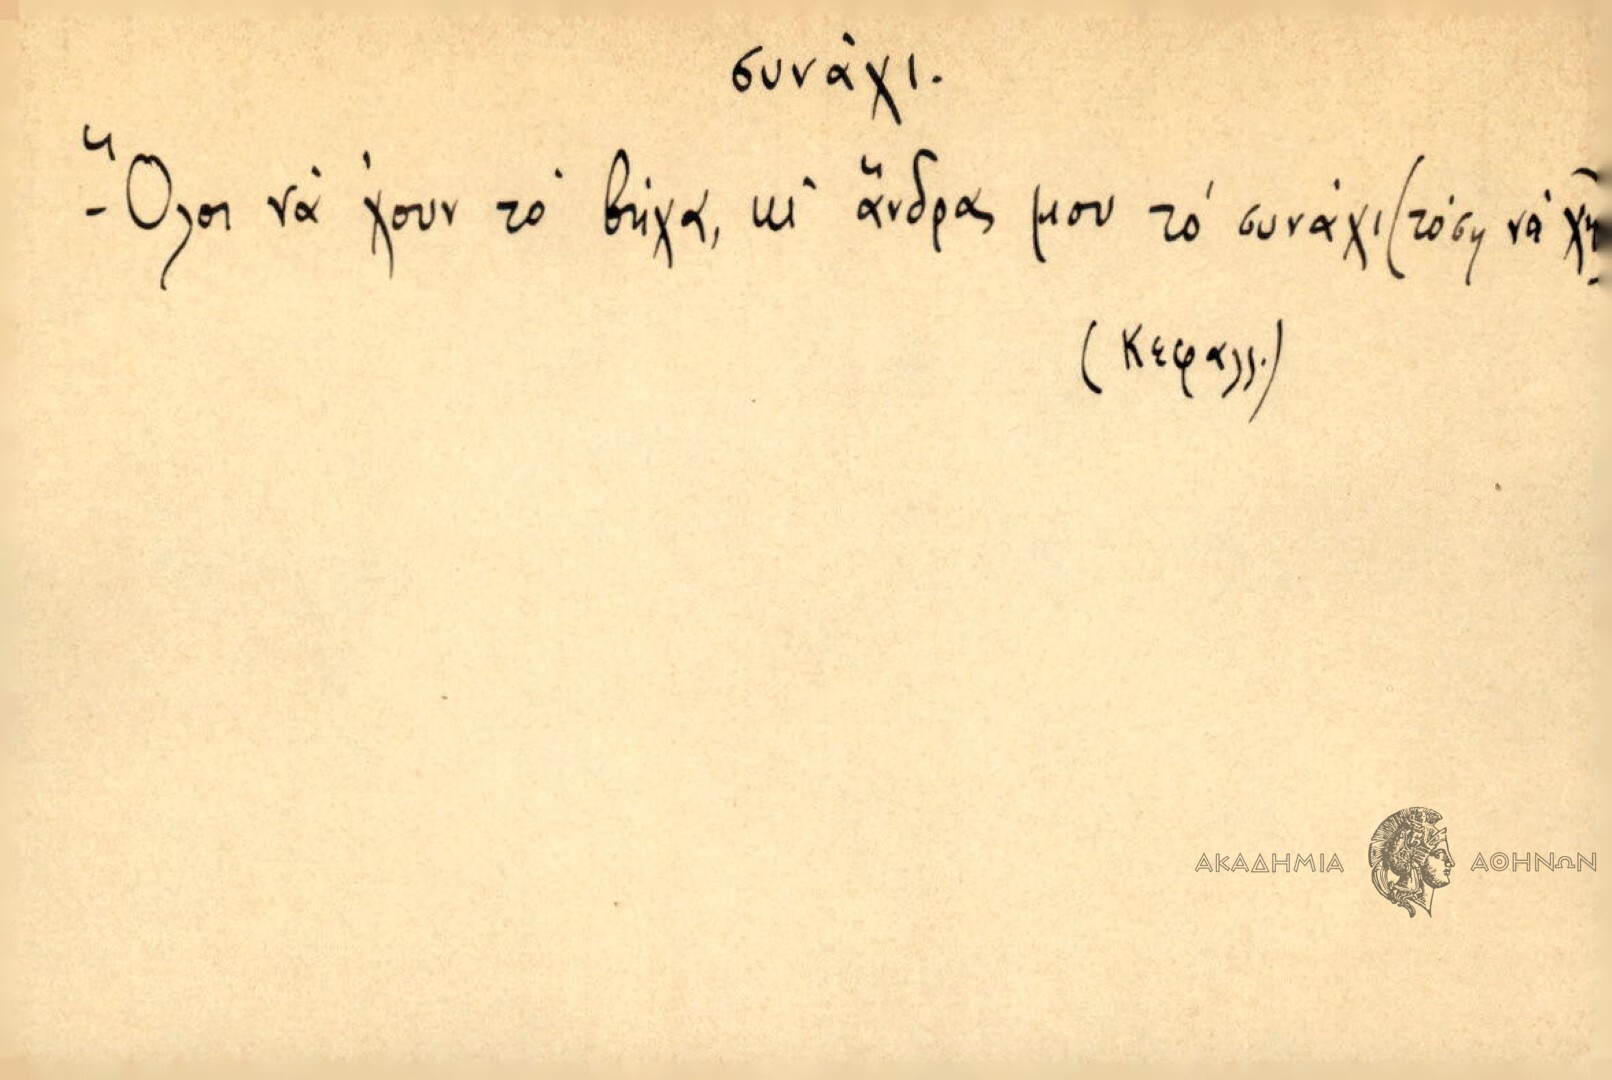 συνάχι.
- Ὅλοι νὰ χουν τὸ βήχα, κι ἄνδρας μου τὸ συνάχι (τόση νὰ
(Κεφαλλ.)
ΑΚΑΔΗΜΙΑ ΑΘΗΝΩΝ